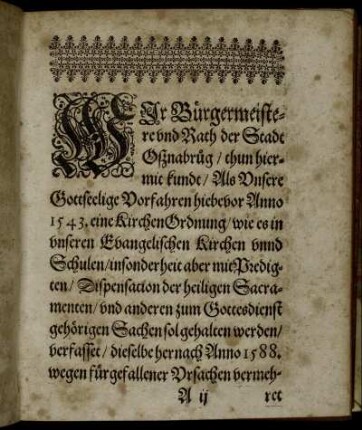 WIr Bürgermeiste-
re vnd Rath der Stadt
Oßnabrüg / thun hier-
mit kundt / Als Vnsere
Gottseelige Vorfahren hiebevor Anno
1543. eine KirchenOrdnung / wie es in
vnseren Evangelischen Kirchen vnnd
Schulen / insonderheit aber mit Predig-
ten / Dispensation der heiligen Sacra-
menten / vnd anderen zum Gottesdienst
gehörigen Sachen sol gehalten werden /
verfasset / dieselbe hernach Anno 1588.
wegen fürgefallener Vrsachen vermeh-
A ij ret